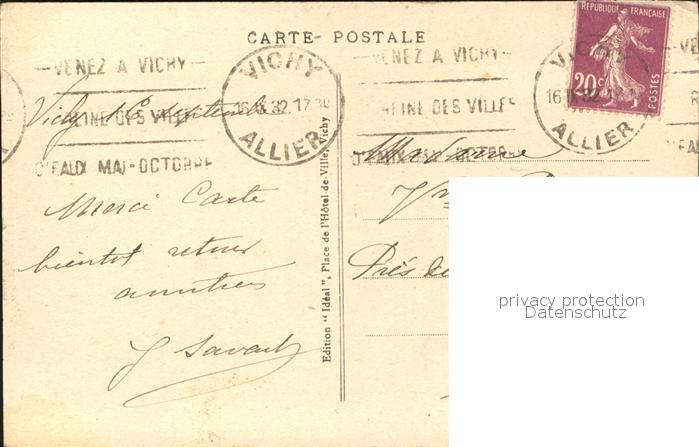 CARTE POSTALE
RÉPUBLIQUE FRANÇAISE
20c
POSTES
VENEZ A VICHY
REINE DES VILLES
D'EAUX MAI-OCTOBRE
VICHY
16-IX 32 17 30
ALLIER
VENEZ A VICHY
REINE DES VILLES
D'EAUX MAI-OCTOBRE
VICHY
16-IX 32 17
ALLIER
Vichy 16 septembre
Merci Carte
bientot retour
amitiés
Madame
Près de
Edition "Idéal", Place de l'Hôtel-de-Ville, Vichy
privacy protection
Datenschutz